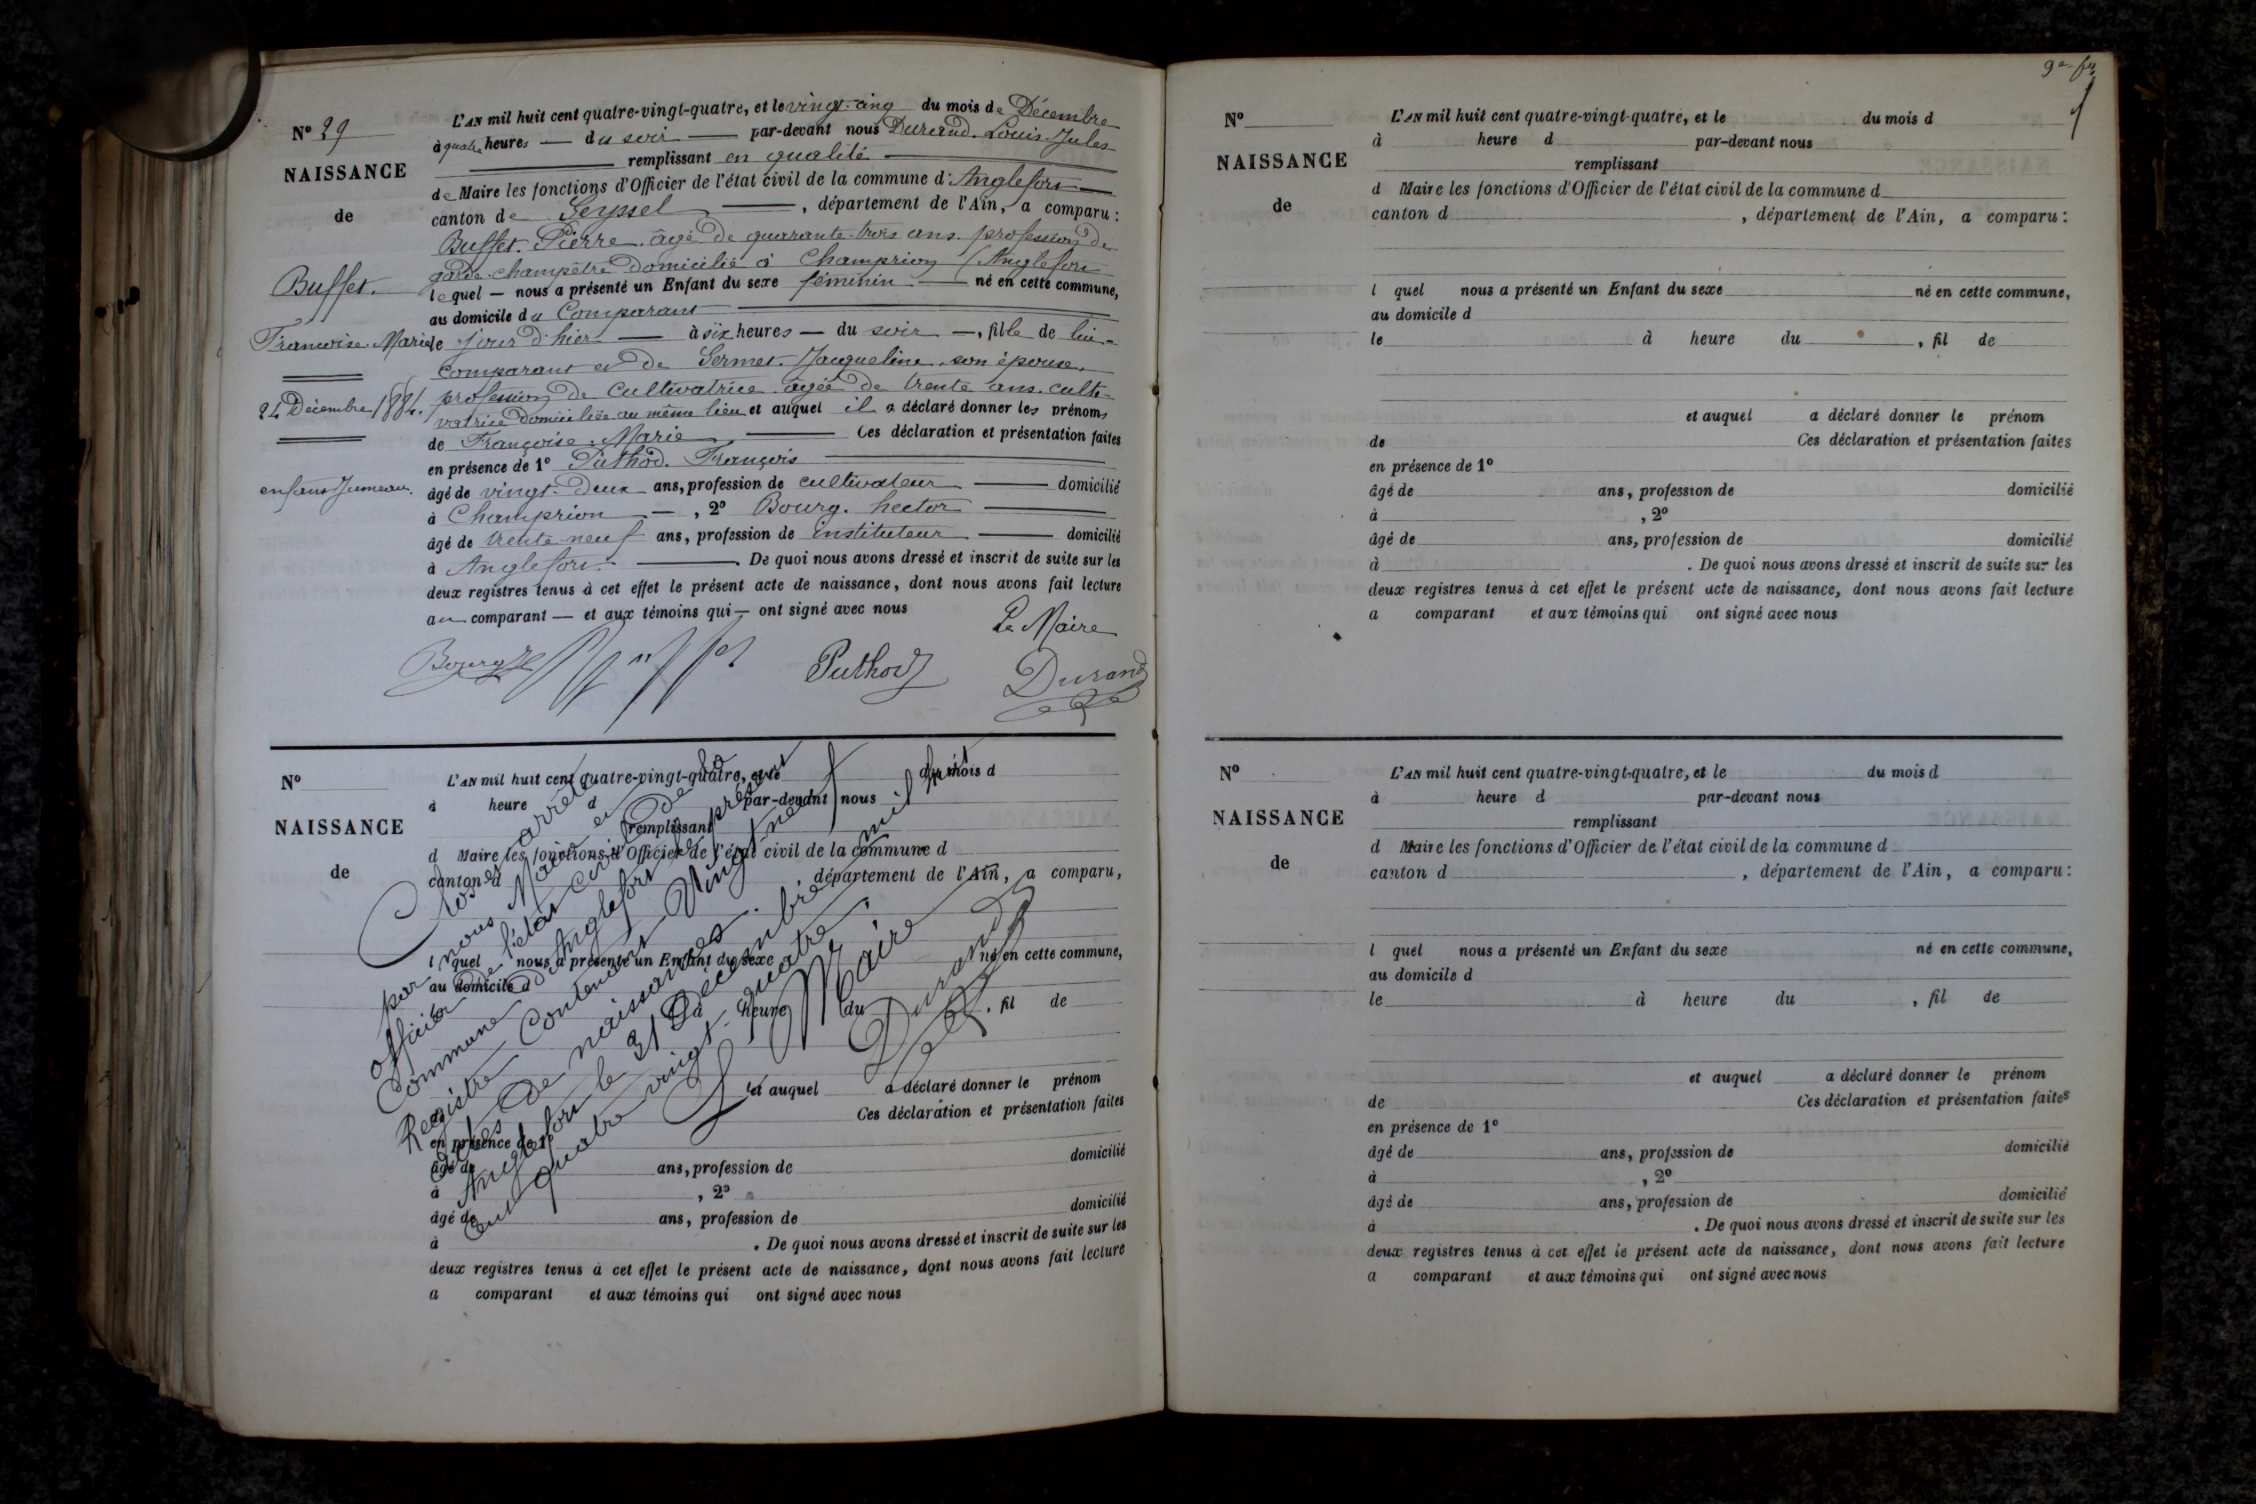 Nº 29
NAISSANCE
de
Buffet.
Françoise Marie
24 Décembre 1884.
enfant Jumeau.
L'AN mil huit cent quatre-vingt-quatre, et le vingt-cinq du mois de Décembre
à quatre heures — du soir — par-devant nous Durand Louis Jules
remplissant en qualité
de Maire les fonctions d'Officier de l'état civil de la commune d'Anglefort
canton de Seyssel, département de l'Ain, a comparu :
Buffet Pierre âgé de quarante-trois ans profession de
garde-champêtre domicilié à Champrion (Anglefort
lequel — nous a présenté un Enfant du sexe féminin — né en cette commune,
au domicile du Comparant
le jour d'hier — à six heures — du soir —, fille de lui-
comparant et de Sermet Jacqueline son épouse,
profession de cultivatrice âgée de trente ans. culti-
vatrice domiciliée au même lieu et auquel il a déclaré donner les prénoms
de Françoise Marie Ces déclaration et présentation faites
en présence de 1º Puthod François
âgé de vingt-deux ans, profession de cultivateur — domicilié
à Champrion —, 2º Bourg hector
âgé de trente-neuf ans, profession de instituteur — domicilié
à Anglefort. De quoi nous avons dressé et inscrit de suite sur les
deux registres tenus à cet effet le présent acte de naissance, dont nous avons fait lecture
au comparant — et aux témoins qui — ont signé avec nous
Le Maire
Bourg Puthod Durand
Nº
NAISSANCE
de
L'AN mil huit cent quatre-vingt-quatre, et le du mois d
à heure d par-devant nous
remplissant
d Maire les fonctions d'Officier de l'état civil de la commune d
canton d , département de l'Ain, a comparu,
l quel nous a présenté un Enfant du sexe né en cette commune,
au domicile d
le à heure du , fil de
et auquel a déclaré donner le prénom
de Ces déclaration et présentation faites
en présence de 1º
âgé de ans, profession de domicilié
à , 2º
âgé de ans, profession de domicilié
à . De quoi nous avons dressé et inscrit de suite sur les
deux registres tenus à cet effet le présent acte de naissance, dont nous avons fait lecture
a comparant et aux témoins qui ont signé avec nous
Clos et arrêté
par nous Maire et
officier de l'état civil de la
Commune d'Anglefort le présent
Registre Contenant Vingt neuf
actes de naissances.
Anglefort le 31 Décembre mil huit
cent quatre vingt quatre.
Le Maire
Durand
Nº
NAISSANCE
de
L'AN mil huit cent quatre-vingt-quatre, et le du mois d
à heure d par-devant nous
remplissant
d Maire les fonctions d'Officier de l'état civil de la commune d
canton d , département de l'Ain, a comparu :
l quel nous a présenté un Enfant du sexe né en cette commune,
au domicile d
le à heure du , fil de
et auquel a déclaré donner le prénom
de Ces déclaration et présentation faites
en présence de 1º
âgé de ans, profession de domicilié
à , 2º
âgé de ans, profession de domicilié
à . De quoi nous avons dressé et inscrit de suite sur les
deux registres tenus à cet effet le présent acte de naissance, dont nous avons fait lecture
a comparant et aux témoins qui ont signé avec nous
Nº
NAISSANCE
de
L'AN mil huit cent quatre-vingt-quatre, et le du mois d
à heure d par-devant nous
remplissant
d Maire les fonctions d'Officier de l'état civil de la commune d
canton d , département de l'Ain, a comparu :
l quel nous a présenté un Enfant du sexe né en cette commune,
au domicile d
le à heure du , fil de
et auquel a déclaré donner le prénom
de Ces déclaration et présentation faites
en présence de 1º
âgé de ans, profession de domicilié
à , 2º
âgé de ans, profession de domicilié
à . De quoi nous avons dressé et inscrit de suite sur les
deux registres tenus à cet effet le présent acte de naissance, dont nous avons fait lecture
a comparant et aux témoins qui ont signé avec nous